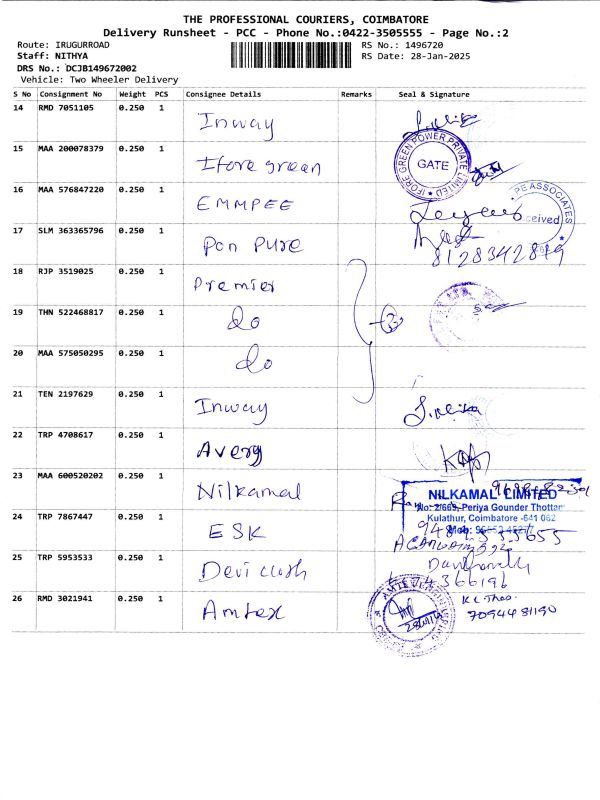 THE PROFESSIONAL COURIERS, COIMBATORE
Delivery Runsheet - PCC - Phone No.:0422-3505555 - Page No.:2
Route: IRUGURROAD
RS No.: 1496720
Staff: NITHYA
RS Date: 28-Jan-2025
DRS No.: DCJB149672002
Vehicle: Two Wheeler Delivery
S No Consignment No Weight PCS Consignee Details Remarks Seal & Signature
14 RMD 7051105 0.250 1 Inway
15 MAA 200078379 0.250 1 Ifore green
IFORE GREEN POWER PRIVATE LIMITED
GATE
16 MAA 576847220 0.250 1 EMMPEE
PE ASSOCIATES
ceived
17 SLM 363365796 0.250 1 Pon PURE
8128342819
18 RJP 3519025 0.250 1 Premier
19 THN 522468817 0.250 1 do
20 MAA 575050295 0.250 1 do
21 TEN 2197629 0.250 1 Inway
22 TRP 4708617 0.250 1 Avery
23 MAA 600520202 0.250 1 Nilkamal
NILKAMAL LIMITED
No: 2/669, Periya Gounder Thottam
Kulathur, Coimbatore -641 062
Mob:
24 TRP 7867447 0.250 1 ESK
25 TRP 5953533 0.250 1 Devi cloth
26 RMD 3021941 0.250 1 Amtex
7094481190